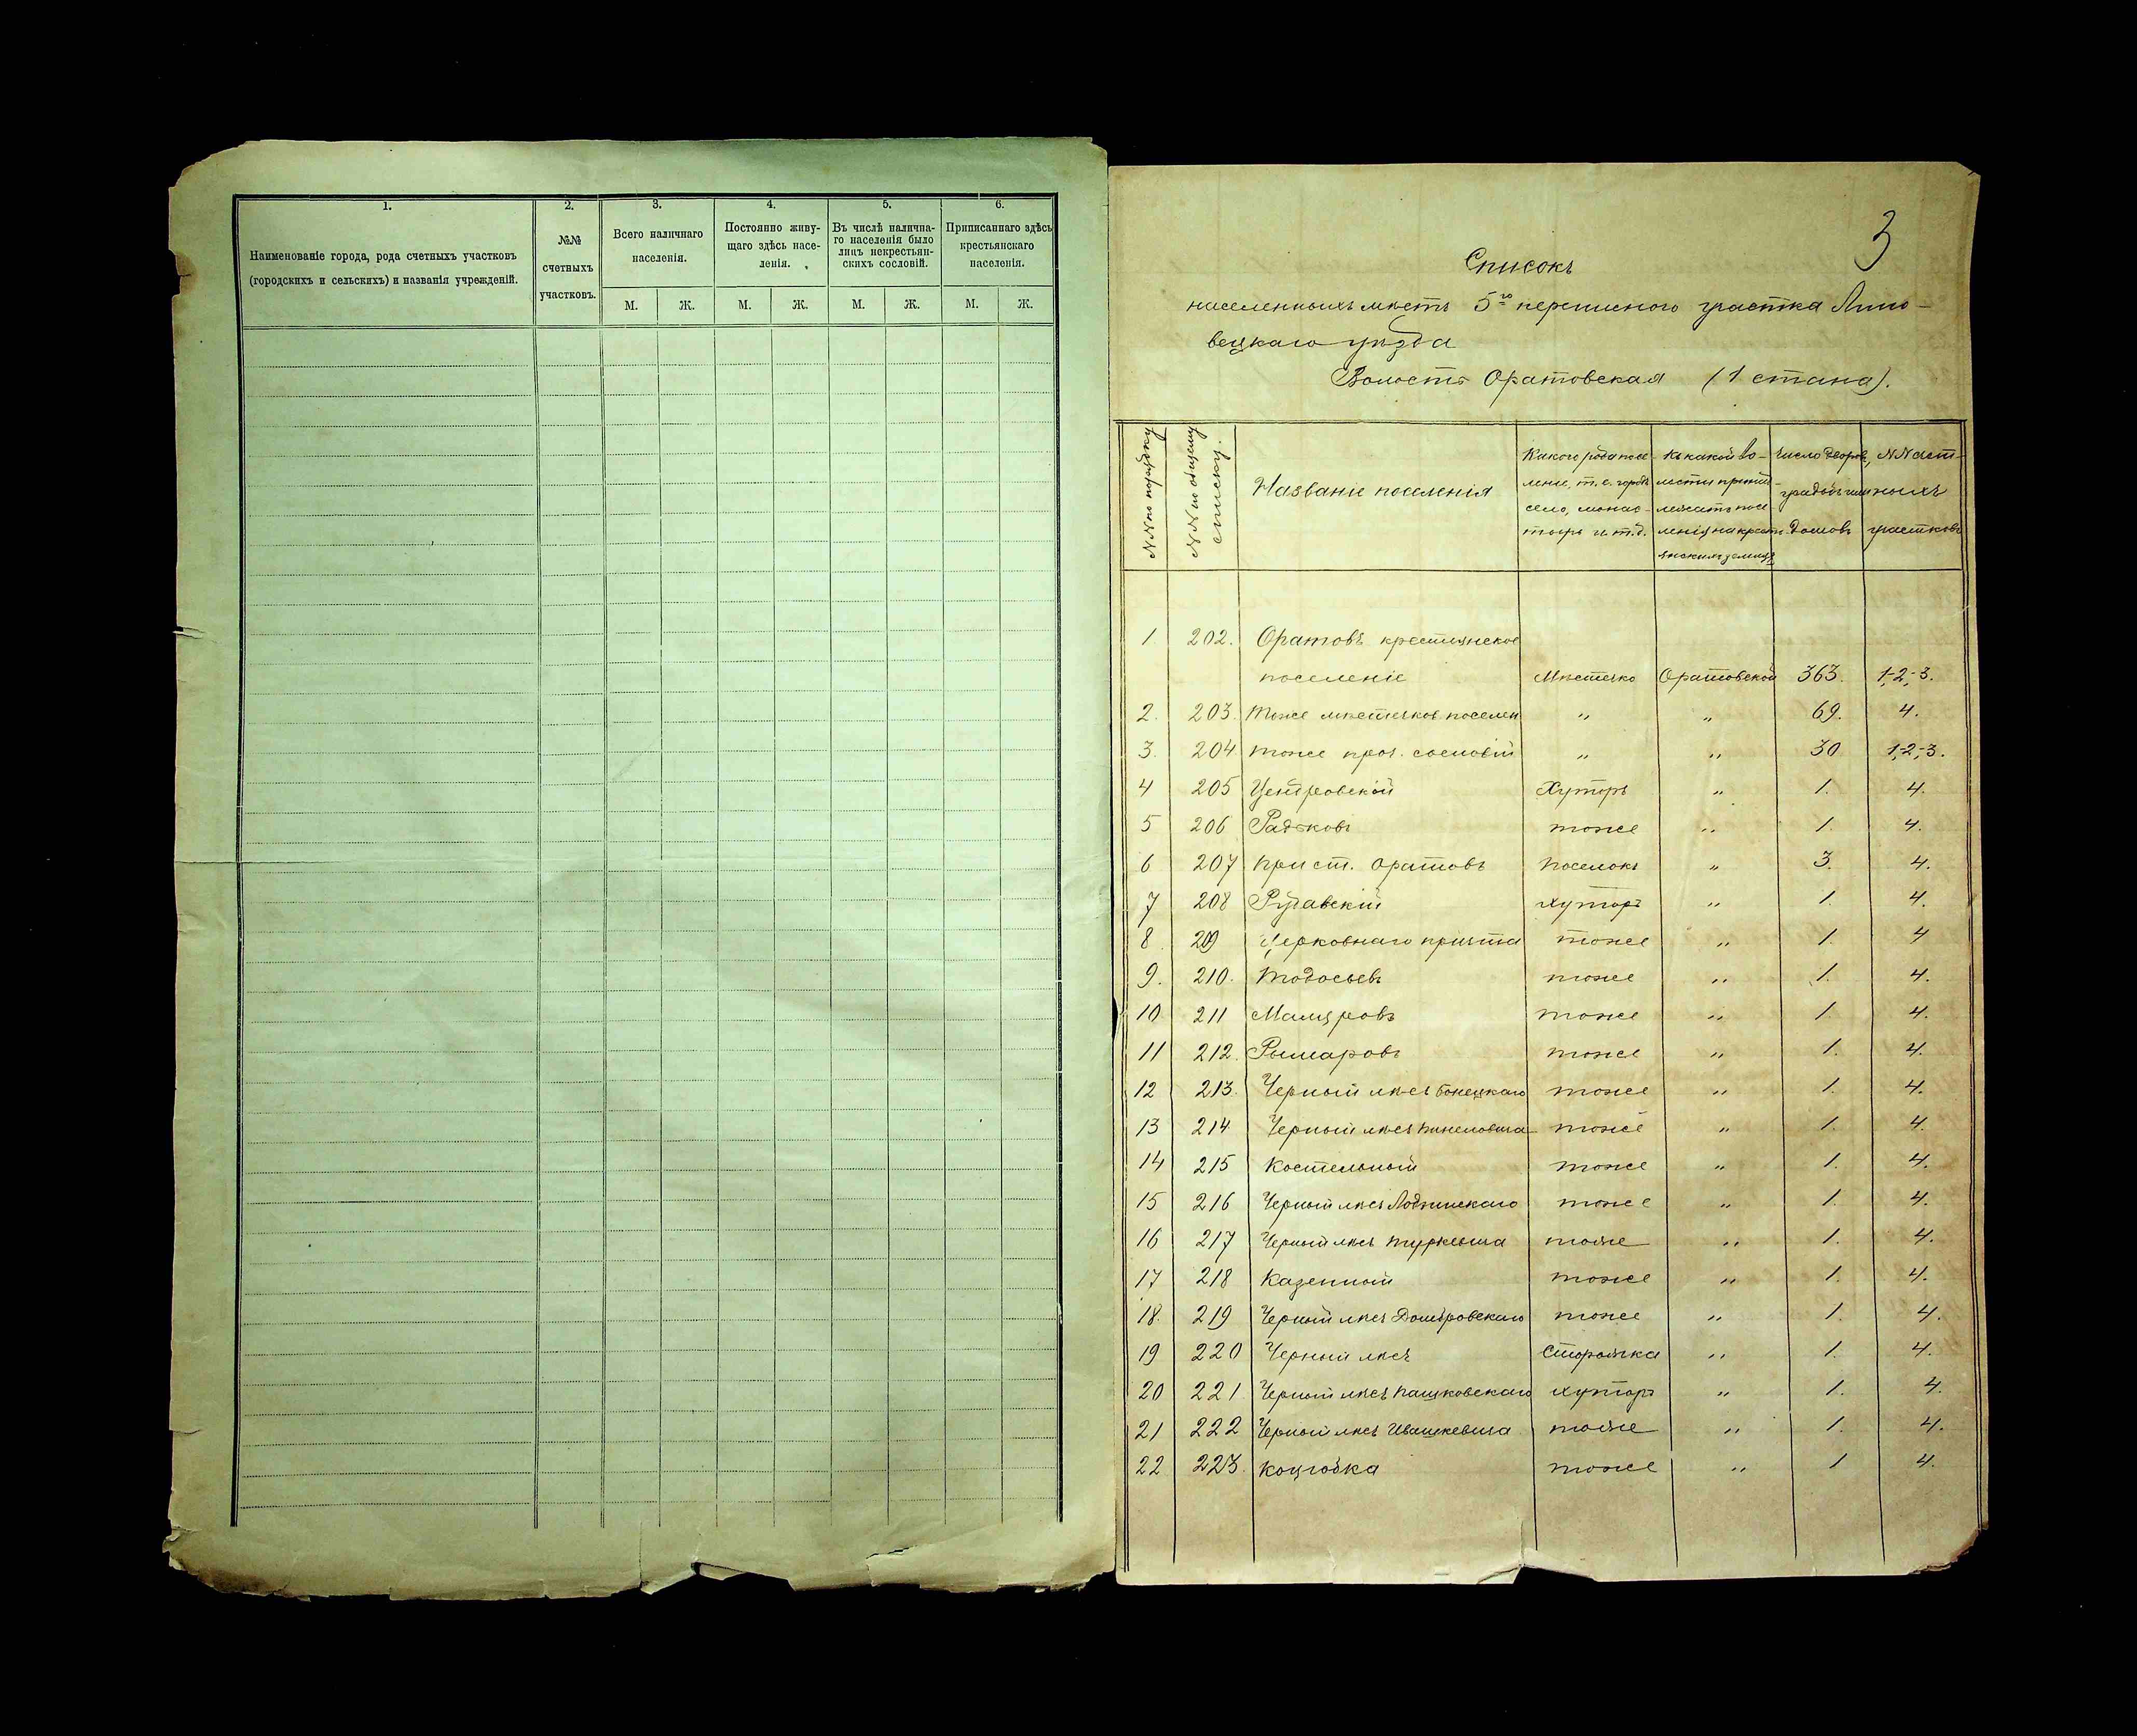 1.
Наименованіе города, рода счетныхъ участковъ
(городскихъ и сельскихъ) и названія учрежденій.
2.
№№
счетныхъ
участковъ.
3.
Всего наличнаго
населенія.
М. Ж.
4.
Постоянно живу-
щаго здѣсь насе-
ленія.
М. Ж.
5.
Въ числѣ налична-
го населенія было
лицъ некрестьян-
скихъ сословій.
М. Ж.
6.
Приписаннаго здѣсь
крестьянскаго
населенія.
М. Ж.
3
Списокъ
населенныхъ мѣстъ 5го переписного участка Липо-
вецкаго уѣзда
Волость Оратовская (1 стана).
NN по порядку
NN по общему
списку.
Названіе поселенія
Какого рода посе-
леніе, т.е. городъ
село, монас-
тырь и т.д.
Къ какой во-
лости принад-
лежатъ посе-
ленія на кресть-
янскихъ земляхъ
Число дворовъ,
усадебъ или
домовъ
NN счет-
ныхъ
участковъ
1 202. Оратовъ крестьянское
поселеніе Мѣстечко Оратовской 363. 1,-2,-3.
2. 203. тоже мѣстечков. поселен „ „ 69. 4.
3. 204 тоже проч. сословій „ „ 30 1,-2,-3.
4 205 Хуторъ „ 1. 4.
5 206 Радьковъ тоже „ 1. 4.
6 207 При ст. Оратовъ поселокъ „ 3. 4.
7 208 хуторъ „ 1. 4.
8 209 Церковнаго причта тоже „ 1. 4
9. 210. Тодосьевъ тоже „ 1. 4.
10 211 Маляровъ тоже „ 1. 4.
11 212. Рымаровъ тоже „ 1. 4.
12 213. Черный лѣсъ Бонецкаго тоже „ 1. 4.
13 214 Черный лѣсъ тоже „ 1. 4.
14 215 Костельный тоже „ 1. 4.
15 216 Черный лѣсъ Лодзинскаго тоже „ 1. 4.
16 217 Черный лѣсъ Туркевича тоже „ 1. 4.
17 218 Казенный тоже „ 1. 4.
18. 219 Черный лѣсъ Домбровскаго тоже „ 1. 4.
19 220 Черный лѣсъ Сторожка „ 1. 4.
20 221 Черный лѣсъ Пашковскаго хуторъ „ 1. 4.
21 222 Черный лѣсъ Ивашкевича тоже „ 1. 4.
22 223. Коцюбка тоже „ 1 4.